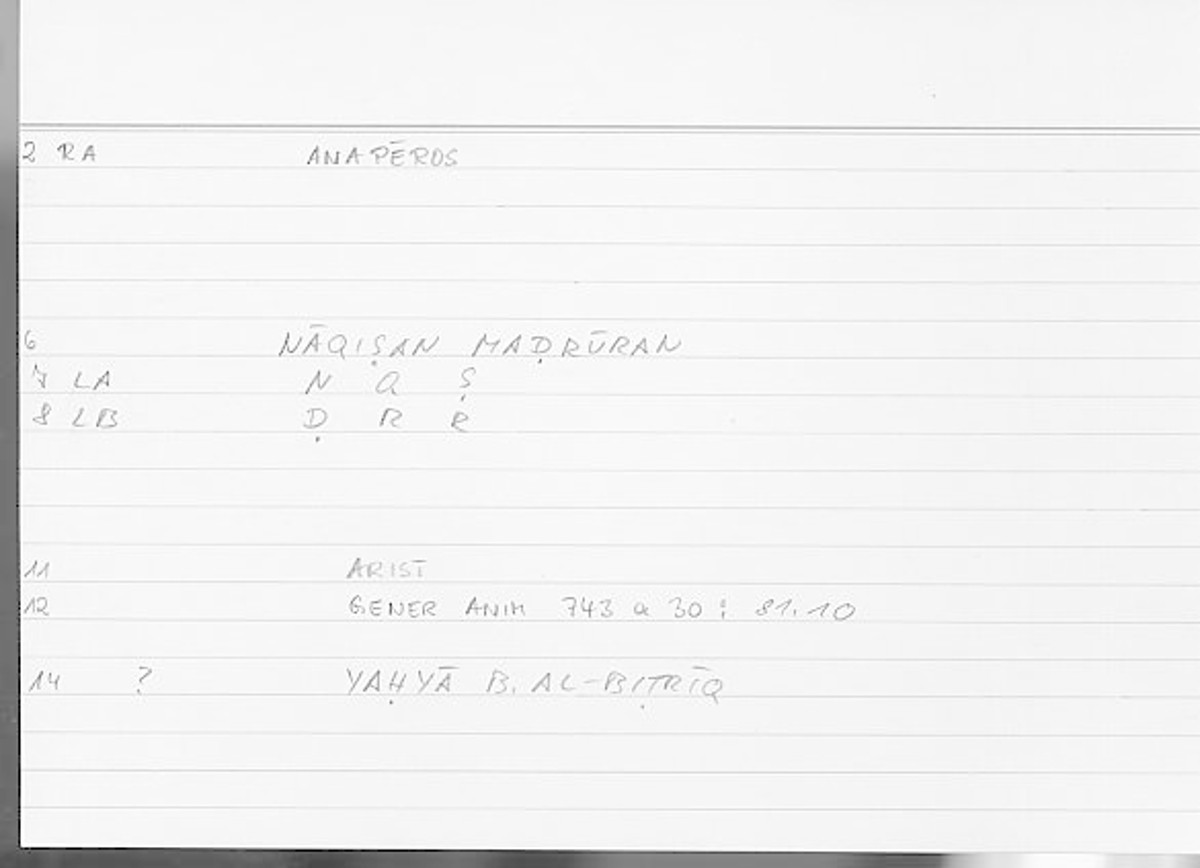 2 RA ANAPĒROS
6 NĀQIṢAN MAḌRŪRAN
7 LA N Q Ṣ
8 LB Ḍ R R
11 ARIST
12 GENER ANIM 743 a 30 : 81.10
14 ? YAḤYĀ B. AL-BIṬRĪQ